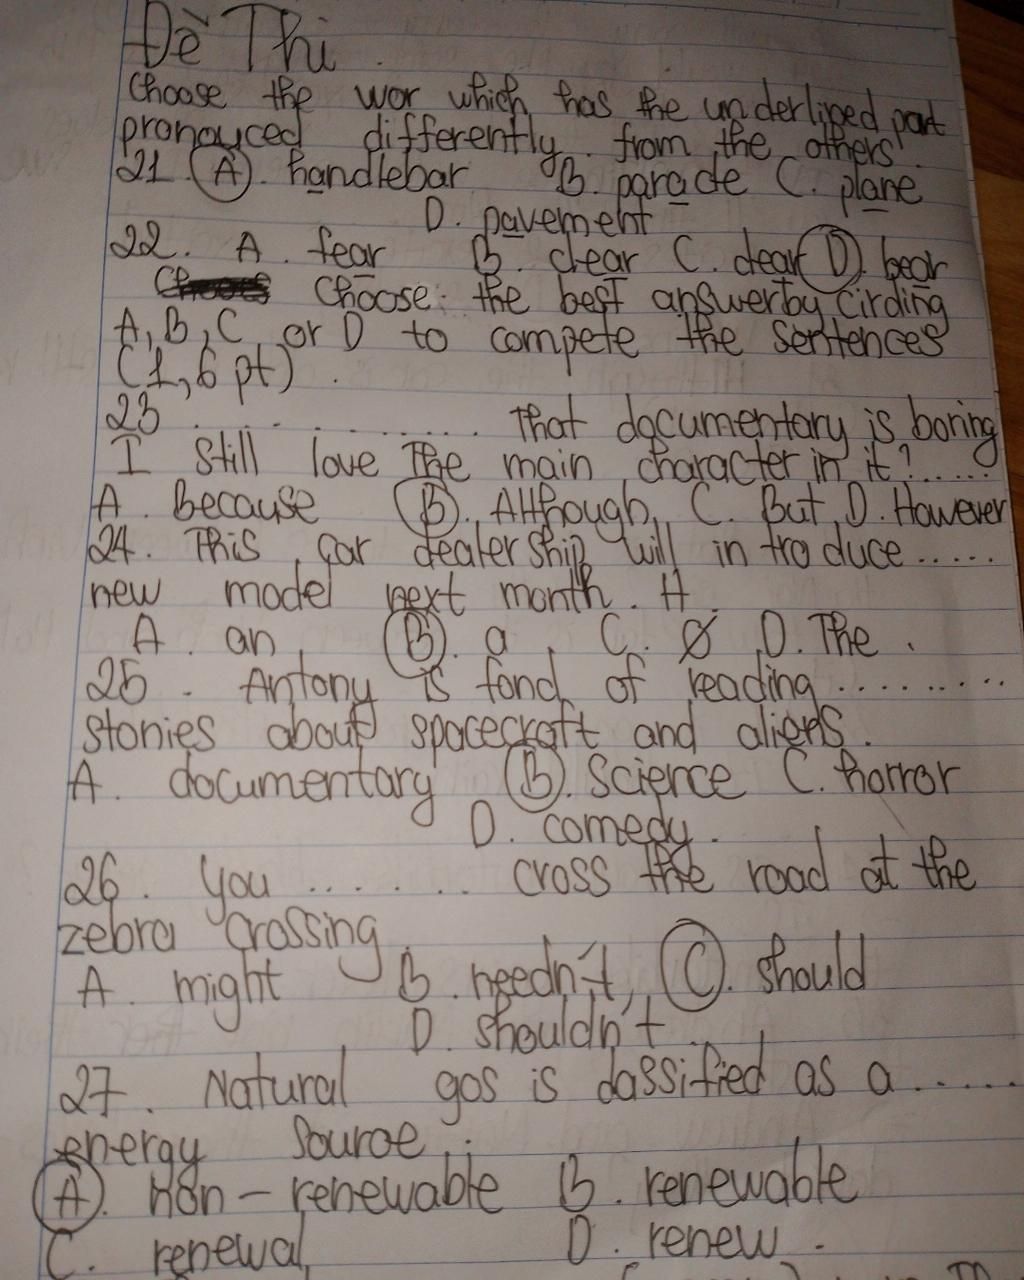 Đề Thi.
Choose the wor which has the underlined part
pronouced differently from the others
21. A. handlebar B. parade C. plane
D. pavement
22. A. fear B. clear C. dear D. bear
Choose: the best answer by Cirding
A, B, C or D to compete the sentences
(1,6 pt).
23 .................. that documentary is boring
I still love The main character in it?......
A. Because B. Although, C. But, D. However
24. This car dealership will introduce.....
new model next month. A
A. an, B. a, C. Ø D. The.
25. Antony is fond of reading..........
stories about spacecraft and aliens.
A. documentary B. Science C. horror
D. comedy.
26. You ....... cross the road at the
zebra crossing
A. might B. needn't, C. should
D. shouldn't.
27. Natural gas is classified as a......
energy source.
A. non-renewable B. renewable
C. renewal D. renew.